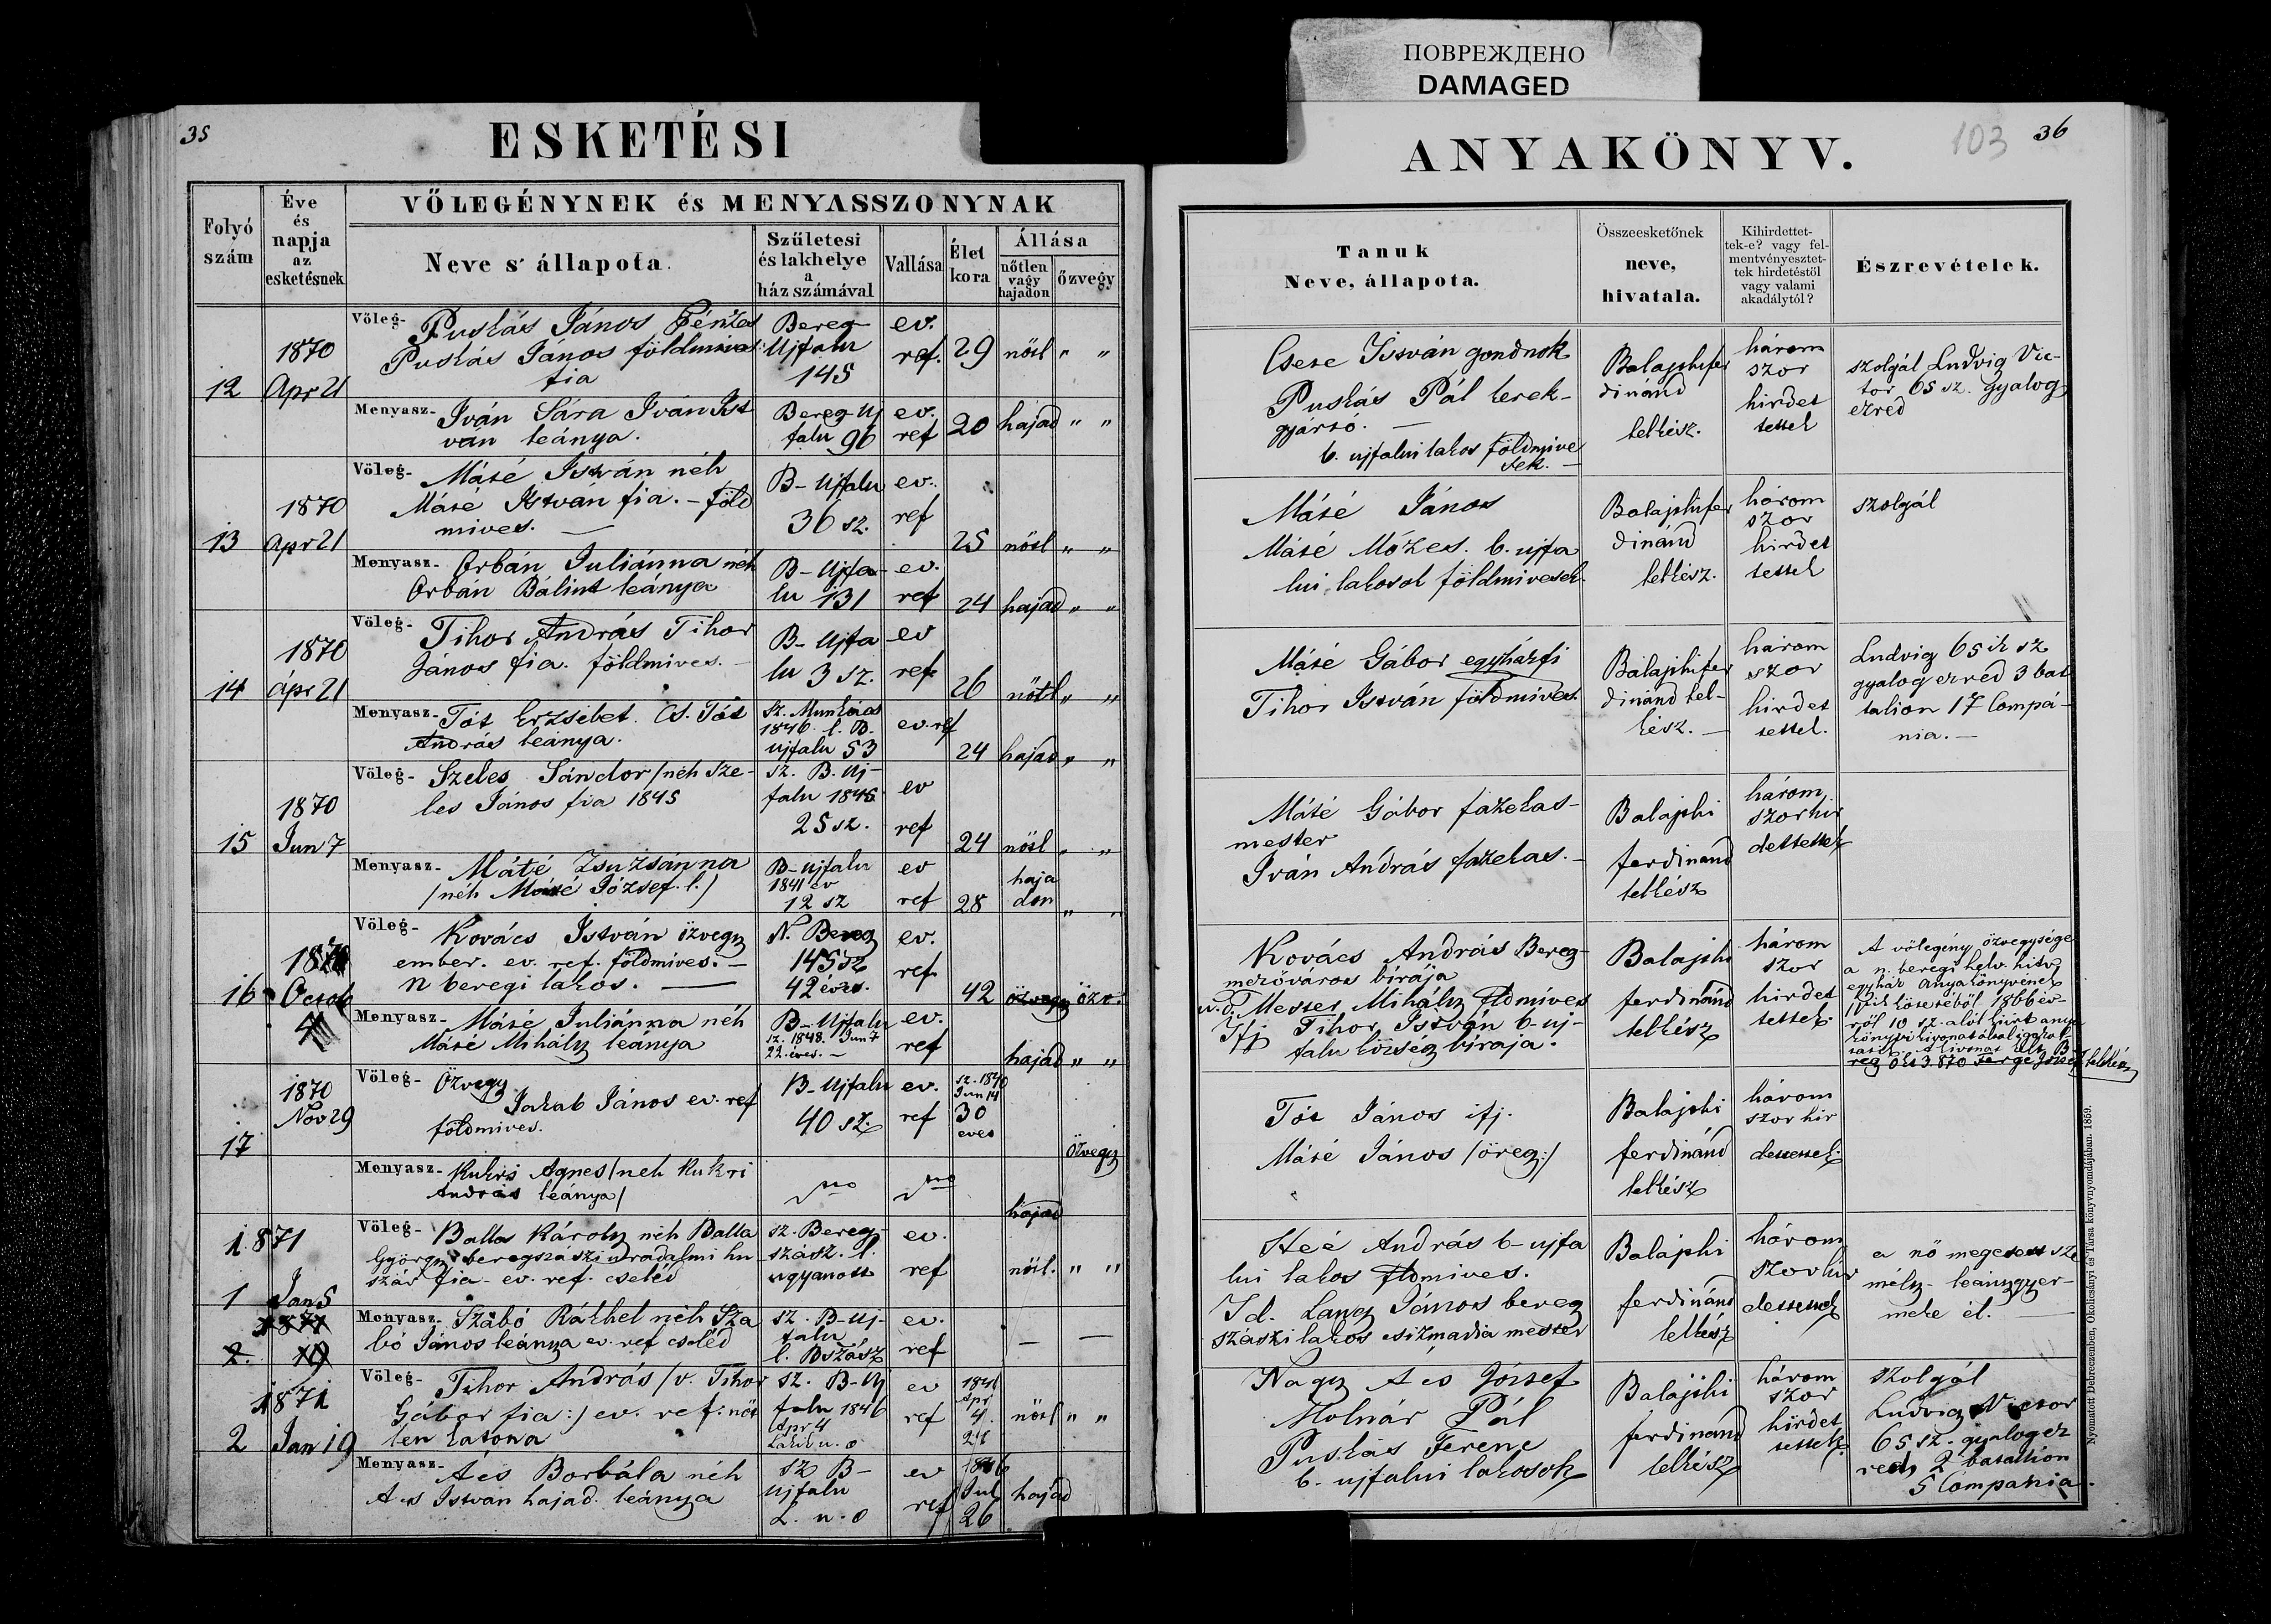 ПОВРЕЖДЕНО
DAMAGED
35
ESKETÉSI
Folyó
szám
Éve
és
napja
az
esketésnek
VŐLEGÉNYNEK és MENYASSZONYNAK
Neve s' állapota.
Születesi
és lakhelye
a
ház számával
Vallása
Élet
kora
Állása
nőtlen
vagy
hajadon
őzvegy
12
1870
Apr 21
Völeg-
Puskás János
Puskás János földmives
fia
Bereg
Ujfalu
145
ev.
ref.
29
nősl " "
Menyasz-
Iván Sára Iván Ist
ván leánya.
Bereg-Uj
falu 96
ev.
ref
20
hajad " "
13
1870
Apr 21
Völeg-
Máté István néh
Máté István fia. - föld
mives.
B-Ujfalu
36 sz.
ev.
ref
25
nősl " "
Menyasz-
Orbán Juliánna néh
Orbán Bálint leánya
B-Ujfa
lu 131
ev.
ref
24
hajad " "
14
1870
Apr 21
Völeg-
Tihor András Tihor
János fia. földmives. -
B-Ujfa
lu 3 sz.
ev
ref
26
nőtl " "
Menyasz-
Tót Erzsébet. Cs. Tót
András leánya.
sz. Munkács
1846. l. B.
ujfalu 53
ev. ref
24
hajad " "
15
1870
Jun 7
Völeg-
Szeles Sándor /néh Sze-
les János fia 1845
sz. B. Uj-
falu 1845
25 sz.
ev
ref
24
nősl " "
Menyasz-
Máté Zsuzsánna
/néh Máté József. l./
B-Ujfalu
1841 év
12 sz
ev
ref
28
haja
don " "
16
1870
Octob
Völeg-
Kovács István özvegy
ember. ev. ref. földmives. -
N beregi lakos.
N. Bereg
145 sz
42 éves.
ev.
ref
42
özvegy özv.
Menyasz-
Máté Juliánna néh
Máté Mihály leánya
B-Ujfalu
sz. 1848. Jun 7
22 éves. -
ev.
ref
hajad " "
17
1870
Nov 29
Völeg-
Özvegy
Jakab János ev. ref
földmives.
B-Ujfalu
40 sz.
ev.
ref
sz. 1840
Jun 14
30
eves
özvegy
Menyasz-
Kukri Agnes /néh Kukri
András leánya/
hajad
1
1871
Jan 5
Völeg-
Balla Károly néh Balla
György beregszászi uradalmi hu
szár fia - ev. ref. cseléd
sz. Bereg-
szász. l.
ugyanott
ev.
ref
nősl. " "
1871
2. 19
Menyasz-
Szabó Rákhel néh Sza
bó János leánya ev. ref cseléd
sz. B-Uj-
falu
l. BSzász
ev.
ref
— —
2
1871
Jan 19
Völeg-
Tihor András /v. Tihor
Gábor fia:/ ev. ref. nőt
len katona
sz. B-Uj
falu 1846
Apr 4
ev
ref
Apr
4.
nősl " "
Menyasz-
Ács Borbála néh
Ács István hajad. leánya
sz B-
Ujfalu
L. u. o
ev
ref
1846
Jul
26
hajad
ANYAKÖNYV.
103
36
Tanuk
Neve, állapota.
Összeesketőnek
neve,
hivatala.
Kihirdettet-
tek-e? vagy fel-
mentvényesztet-
tek hirdetéstől
vagy valami
akadálytól?
Észrevételek.
Csere István gondnok
Puskás Pál kerek-
gyártó. —
b. ujfalui lakos földmive
sek. —
Balajthi fer
dinánd
lelkész.
három
szor
hirdet
tettek
szolgál Ludvig Vic-
tor 65 sz. gyalog
ezred
Máté János
Máté Mózes. b. ujfa
lui lakosok földmivesek.
Balajthi fer
dinánd
lelkész.
három
szor
hirdet
tettek
szolgál
Máté Gábor egyházfi
Tihor István földmives.
Balajthi fer
dinánd lel-
kész. —
három
szor
hirdet
tettek.
Ludvig 65 ik sz
gyalog ezred 3 bat
talion 17 Compá-
nia. —
Máté Gábor fazekas-
mester
Iván András fazekas. -
Balajthi
ferdinánd
lelkész
három
szor hir
dettettek
Kovács András Bereg-
mezőváros birája
Messer Mihály fldmives
Ifj Tihor István b-uj-
falu község biraja.
Balajthi
ferdinánd
lelkész
három
szor
hirdet
tettek.
A vőlegény özvegysége
a n. beregi helv. hitv
egyház Anyakönyvének
kötetéből 1866 év-
ről 10 sz. alól kiirt anya
könyvi kivonatával igazol
lelkész
Tót János ifj.
Máté János /öreg:/
Balajthi
ferdinánd
lelkész
három
szor hir
dettettek.
András b-ujfa
lui lakos fldmives.
Id. Lang János bereg
szászi lakos csizmadia mester
Balajthi
ferdinánd
lelkész
három
szor hir
dettettek
a nő megesett sze
mély - leánygyer-
meke él.
Nagy Ács József
Molnár Pál
Puskás Ferenc
b. ujfalui lakosok
Balajthi
ferdinánd
lelkész
három
szor
hirdet
tettek.
szolgál
Ludvig Victor
65 sz. gyalogez
red, 2 batallion
5 Compania.
Nyomatott Debreczenben, Okolicsányi és Társa könyvnyomdájában. 1859.